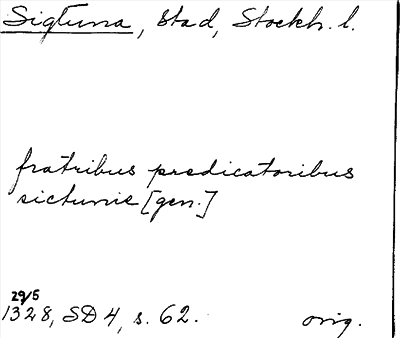 Sigtuna, stad, Stockh. l.
fratribus predicatoribus
sictunie [gen.]
29/5
1328, SD 4, s. 62. orig.